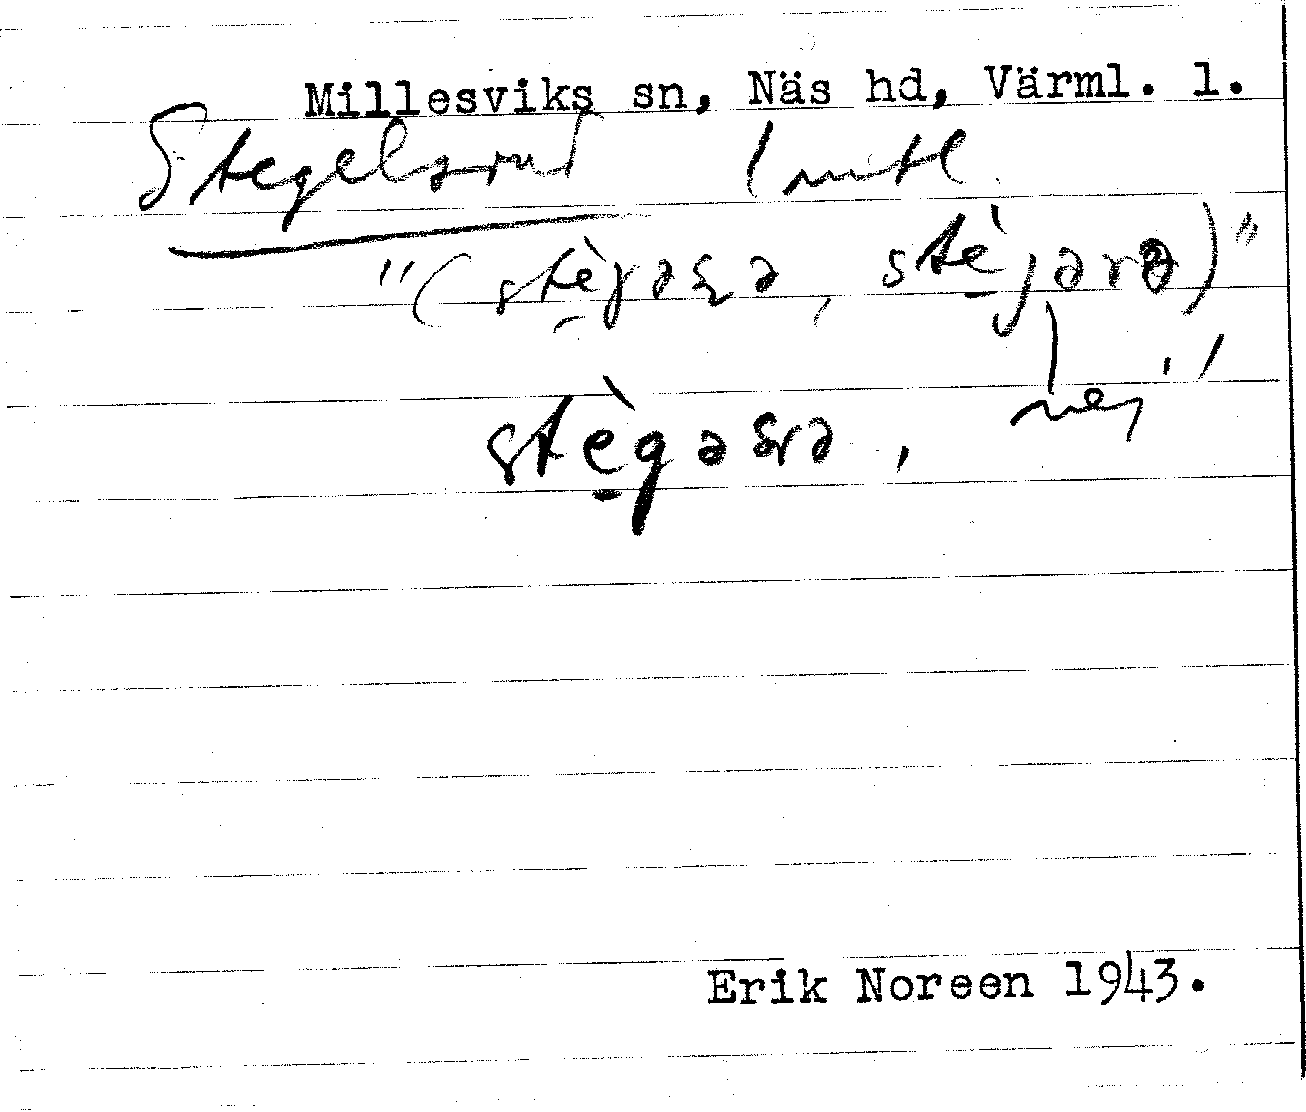 Millesviks sn, Näs hd, Värml. l.
Stegelsrud 1 mtl.
"(stè̱gəsə, stè̱jərə)"
nej!
stè̱gəsrə,
Erik Noreen 1943.